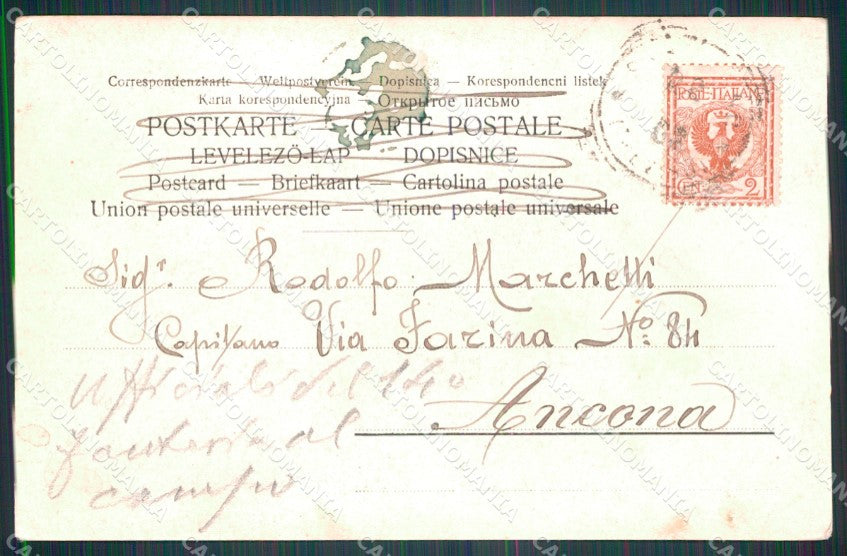 Correspondenzkarte — Weltpostverein — Dopisnica — Korespondencni listek
Karta korespondencyjna — Открытое письмо
POSTKARTE — CARTE POSTALE
LEVELEZÖ-LAP DOPISNICE
Postcard — Briefkaart — Cartolina postale
Union postale universelle — Unione postale universale
POSTE·ITALIAN
CEN 2
Sigr. Rodolfo Marchetti
Capitano Via Farina No. 84
Ancona
Ufficiali del
fanteria al
campo
CARTOLINOMANIA